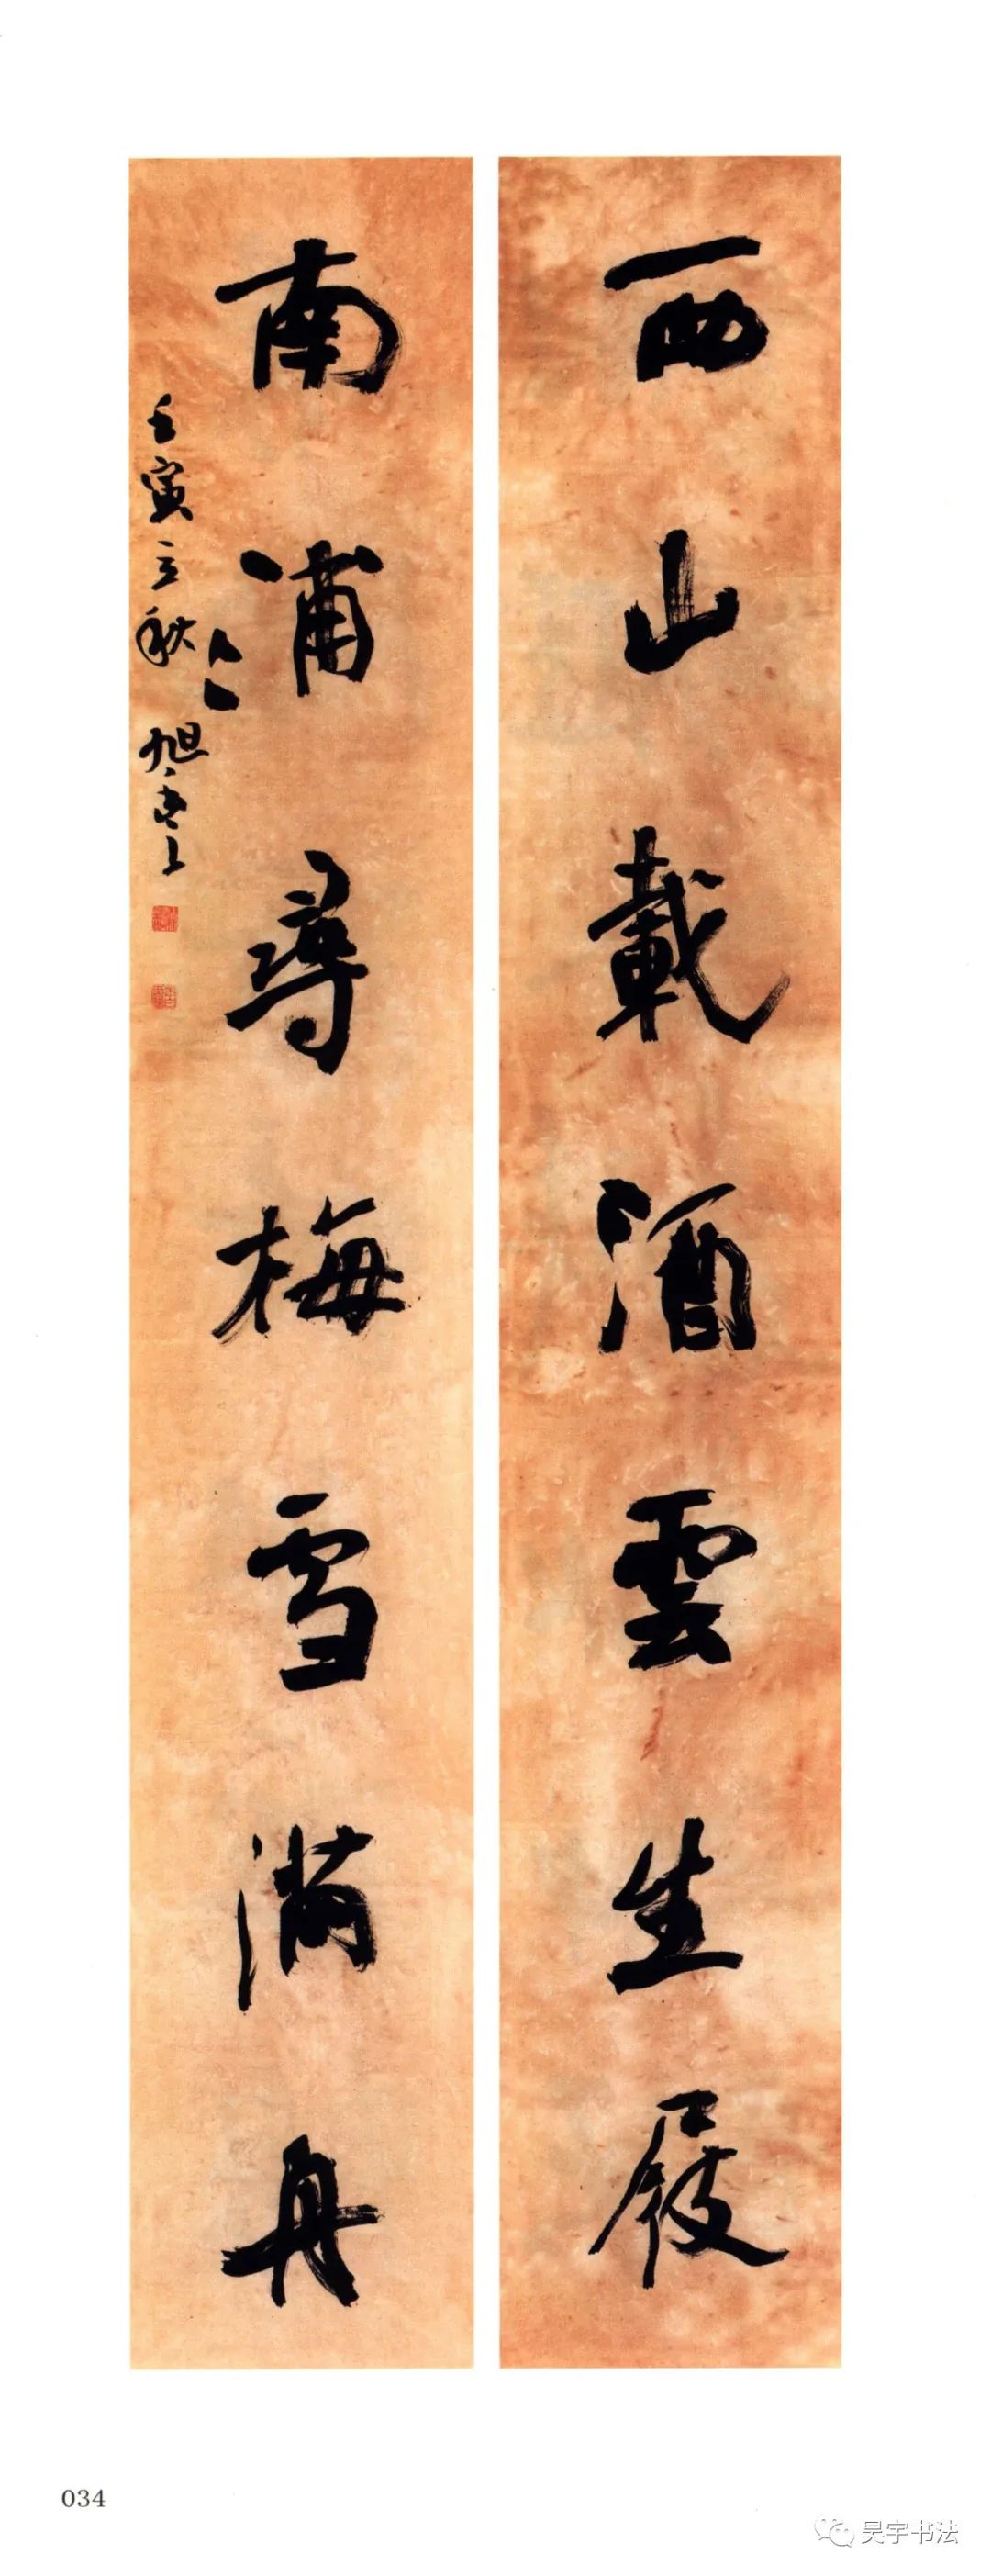 西山載酒雲生屐
南浦尋梅雪滿舟
壬寅立秋
旭
034
昊宇书法